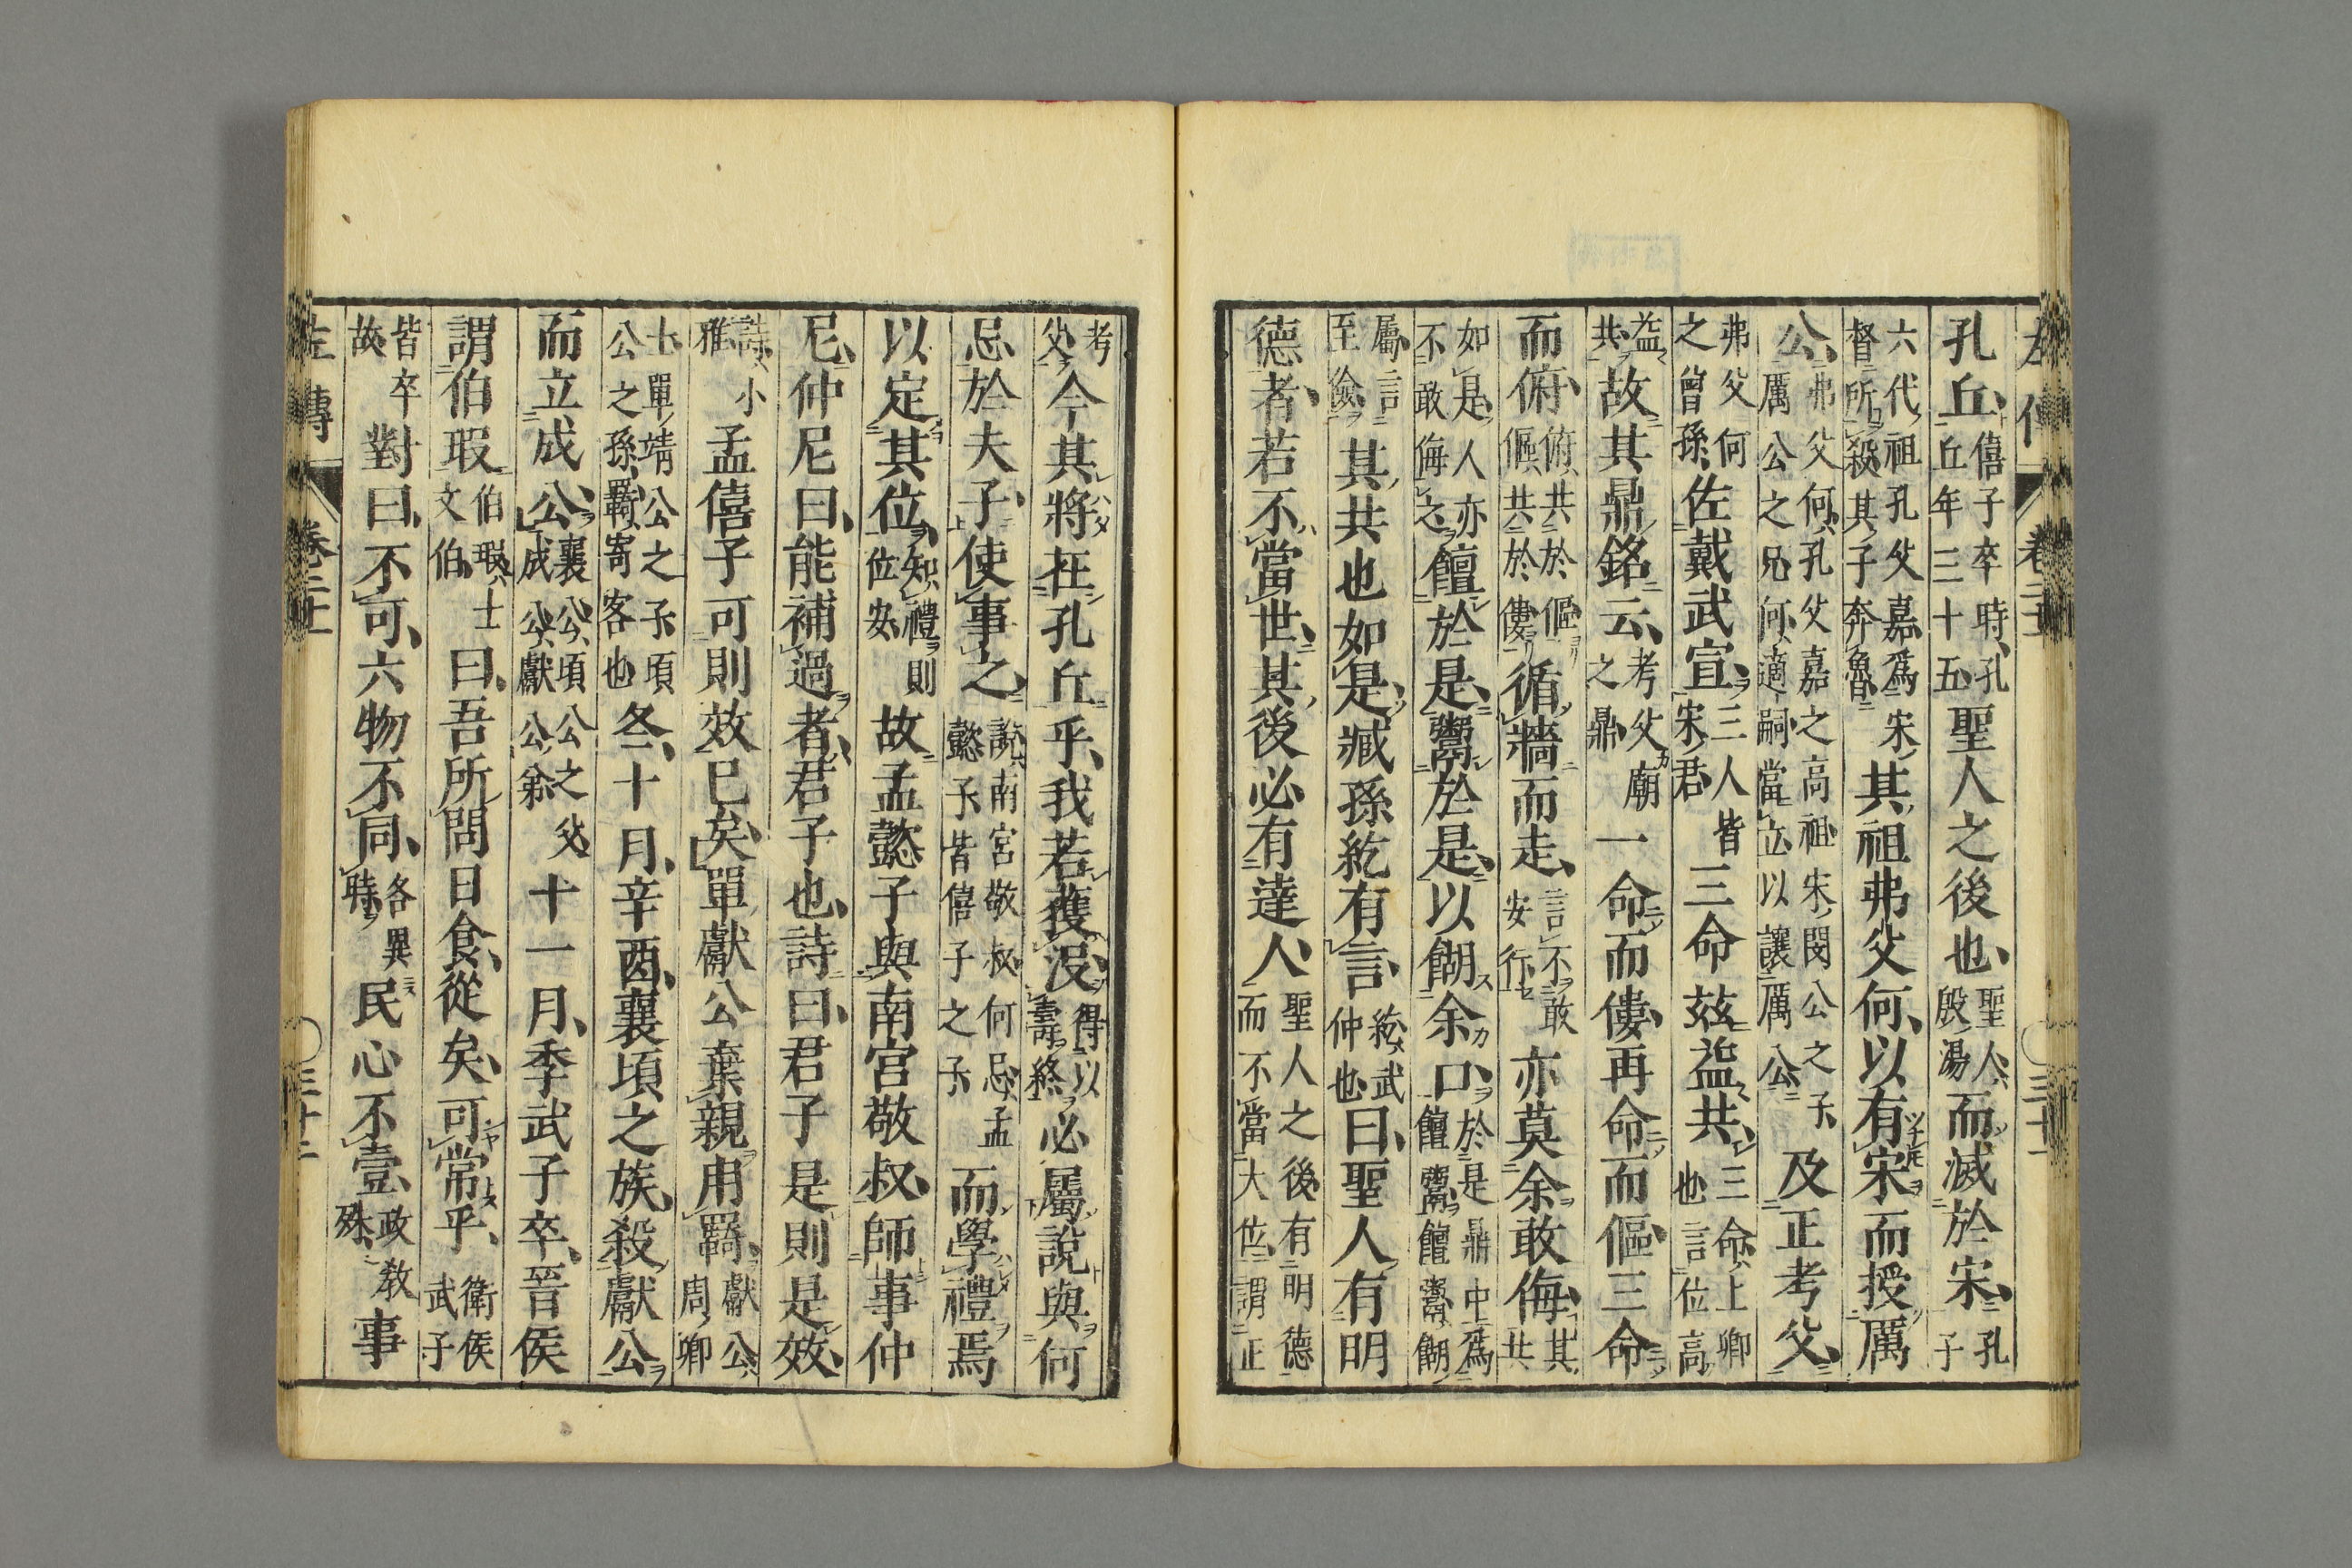 左傳 卷二十 三十一
孔丘僖子卒時孔丘年三十五聖人之後也聖人殷湯而滅於宋孔子
六代祖孔父嘉爲宋督所殺其子奔魯其祖弗父何以有宋而授厲
公弗父何孔父嘉之高祖宋閔公之子厲公之兄何適嗣當立以讓厲公及正考父
弗父何之曾孫佐戴武宣三人皆宋君三命茲益共三命上卿也言位高
益共故其鼎銘云考父廟之鼎一命而僂再命而傴三命
而俯俯共於傴傴共於僂循牆而走言不敢安行亦莫余敢侮其共
如是人亦不敢侮之饘於是鬻於是以餬余口於是鼎中爲饘鬻饘鬻餬
屬言至儉其共也如是臧孫紇有言紇武仲也曰聖人有明
德者若不當世其後必有達人聖人之後有明德而不當大位謂正
考父今其將在孔丘乎我若獲沒得以壽終必屬說與何
忌於夫子使事之說南宮敬叔何忌孟懿子皆僖子之子而學禮焉
以定其位知禮則位安故孟懿子與南宮敬叔師事仲
尼仲尼曰能補過者君子也詩曰君子是則是效
詩小雅孟僖子可則效已矣單獻公棄親用羈獻公周卿
士單靖公之子頃公之孫羈寄客也冬十月辛酉襄頃之族殺獻公
而立成公襄公頃公之父成公獻公弟十一月季武子卒晉侯
謂伯瑕伯瑕士文伯曰吾所問日食從矣可常乎衛侯武子
皆卒故對曰不可六物不同各異時民心不壹政教殊事
左傳 卷二十 三十二